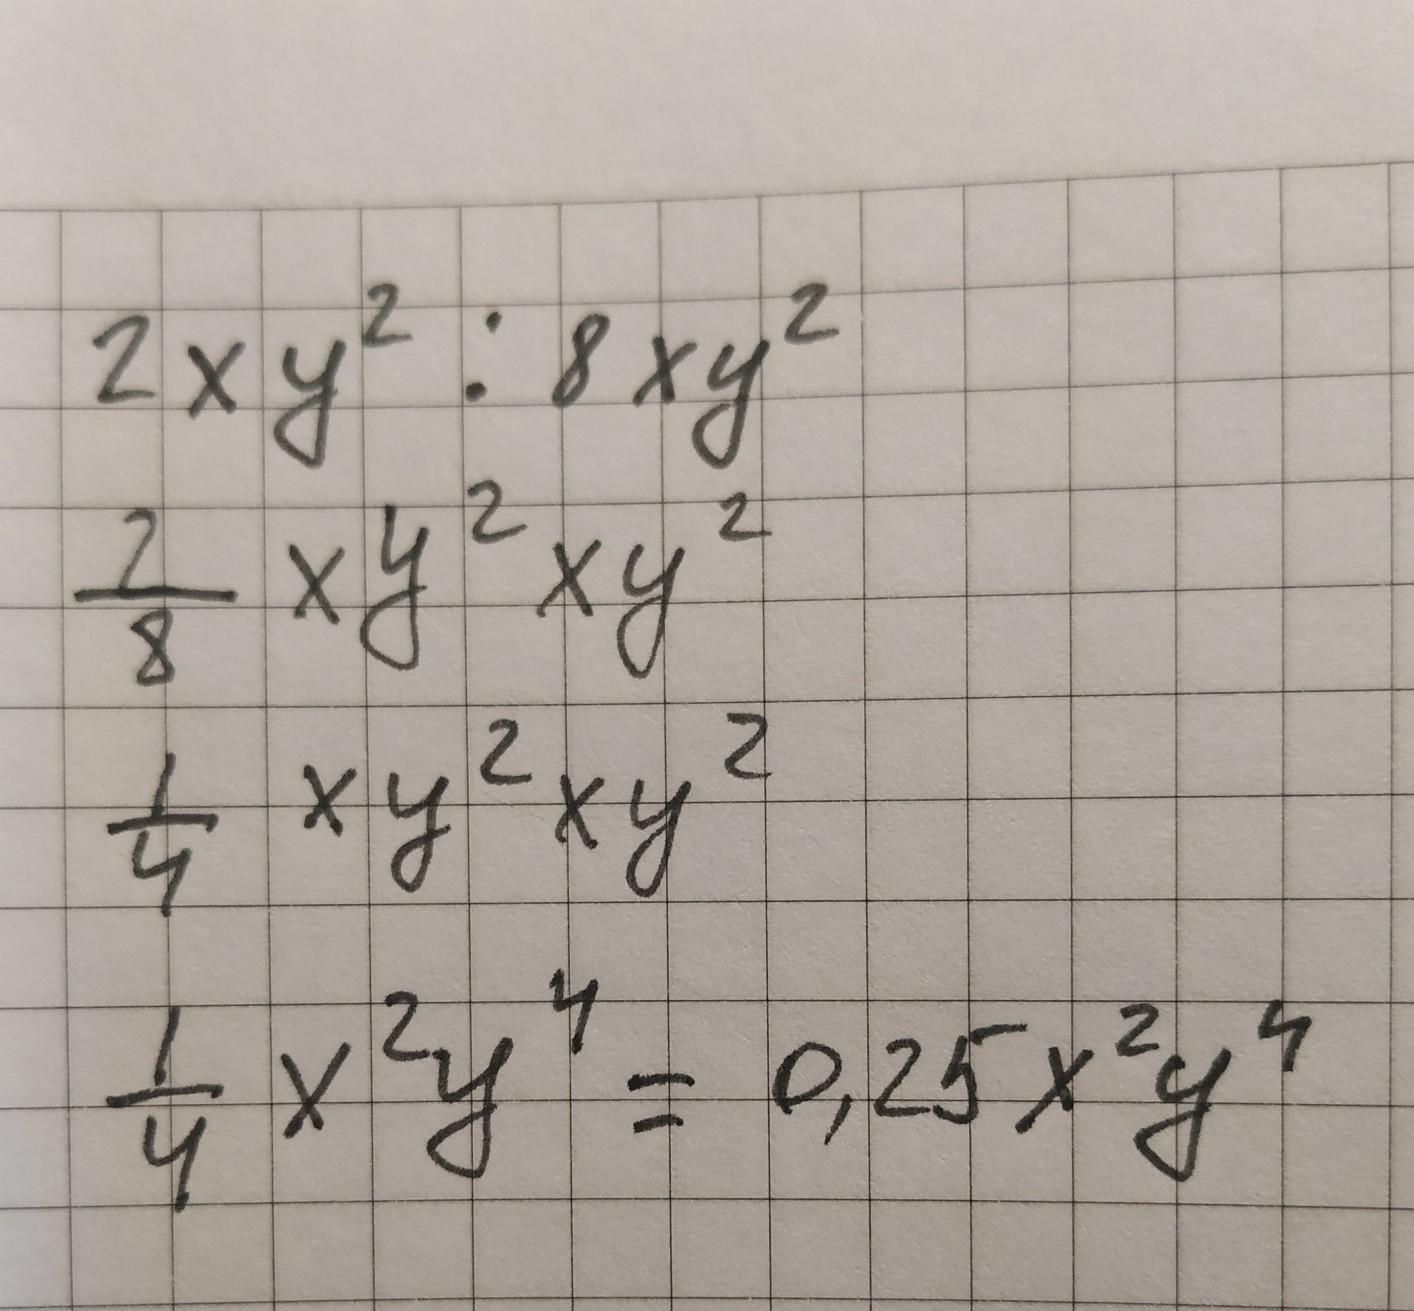 2xy² : 8xy²
2/8 xy² xy²
1/4 xy² xy²
1/4 x²y⁴ = 0,25x²y⁴